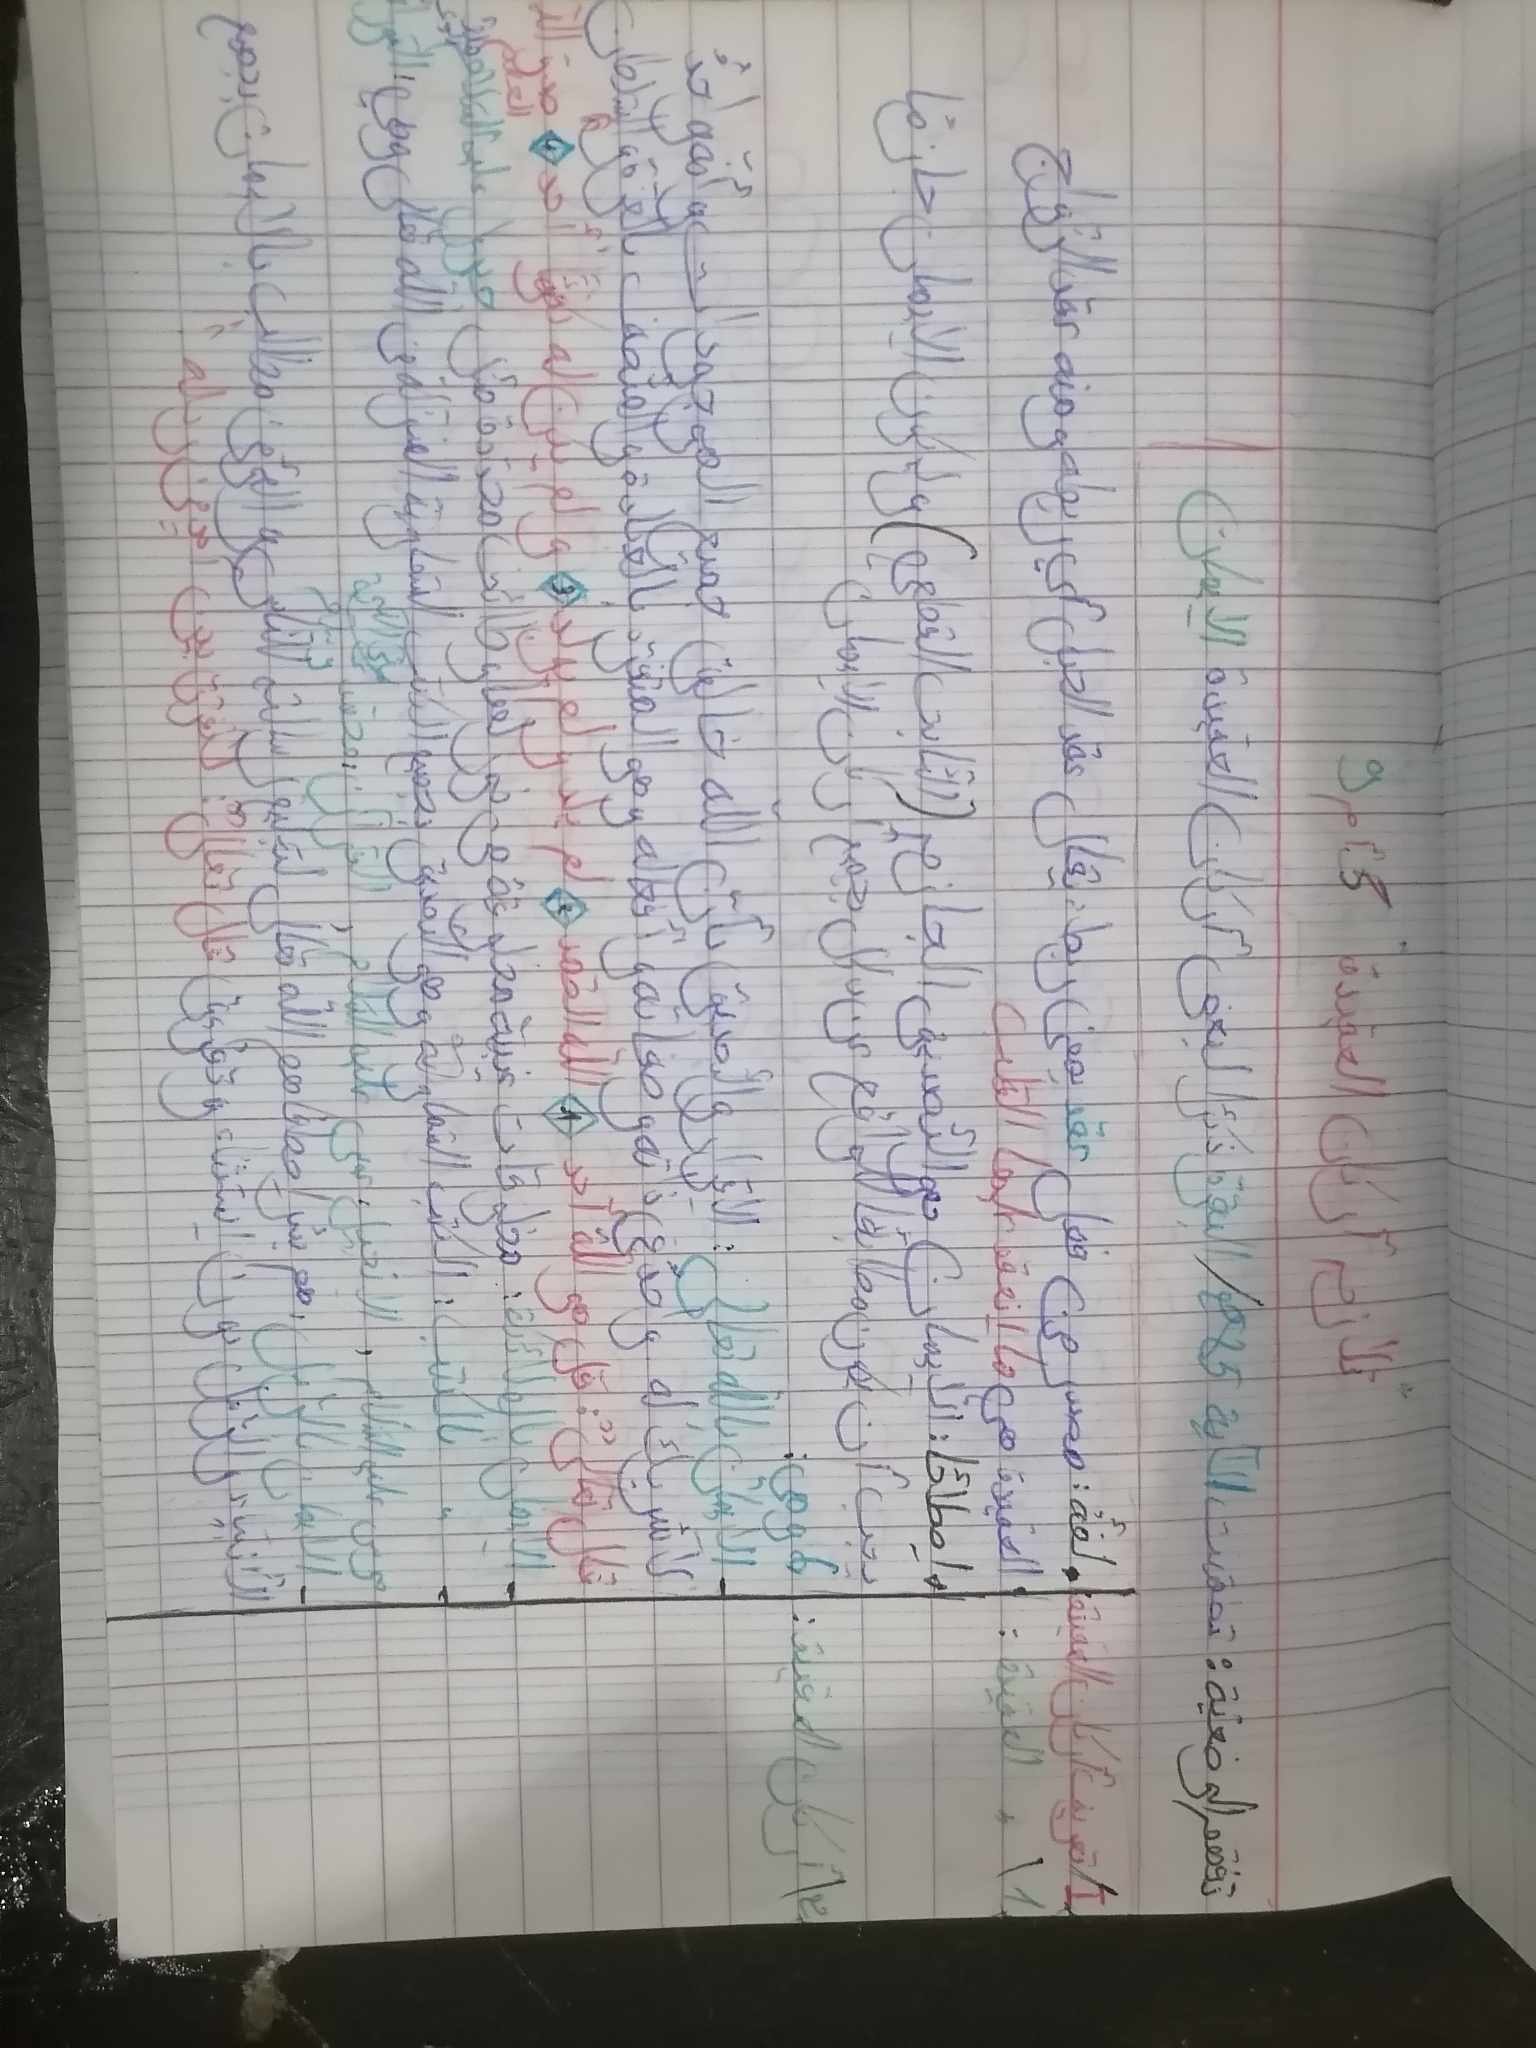 تلازم أركان العقيدة
تفهم الوضعية: تضمنت الآية 285/ البقرة ذكرًا لبعض أركان العقيدة الإيمان
I/ تعريف أركان العقيدة: • لغة: مصدر من فعل عقد بمعنى ربط: يقال عقد الحبل أي ربطه ومنه عقد الزواج
1\ العقيدة: العقيدة هي ما انعقد عليها القلب
• اصطلاحًا: الإيمان هو التصديق الجازم (الثابت القطعي) وليكون الإيمان جازمًا
يجب أن يكون مطابقًا للواقع عن دليل جميع أركان الإيمان
2\ أركان العقيدة: 6 وهي:
- الإيمان بالله تعالى: الإقرار والتصديق بأن الله خالق جميع الموجودات وأنه واحد
لا شريك له واحد في ذاته وصفاته وأفعاله وهو المتفرد بالعبادة والمتصف بالعزة والسلطان
قال تعالى: قل هو الله أحد 1 الله الصمد 2 لم يلد ولم يولد 3 ولم يكن له كفؤا أحد 4 صدق الله
العظيم
- الإيمان بالملائكة: مخلوقات غيبية مخلوقة من نور لها وظائف محددة مثل جبريل عليه السلام
- " بالكتب: الكتب السماوية وهو التصديق بجميع الكتب السماوية المنزلة من الله تعالى وهي: التوراة
موسى عليه السلام, الإنجيل عيسى عليه السلام, القرآن: محمد صلى الله
عليه وسلم
- الإيمان بالرسل: هم بشر اصطفاهم الله تعالى لتبليغ رسالته للناس والمؤمن مطالب بالإيمان بجميع
الأنبياء والرسل بدون استثناء وتفريق قال تعالى: لا نفرق بين أحد من رسله